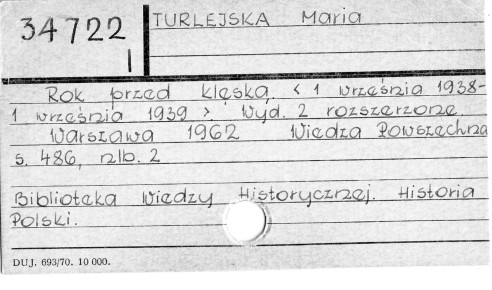 34722
I
TURLEJSKA Maria
Rok przed klęską < 1 września 1938-
1 września 1939 > Wyd. 2 rozszerzone.
Warszawa 1962 Wiedza Powszechna
s. 486, nlb. 2
Biblioteka Wiedzy Historycznej. Historia
Polski.
DUJ. 693/70. 10 000.